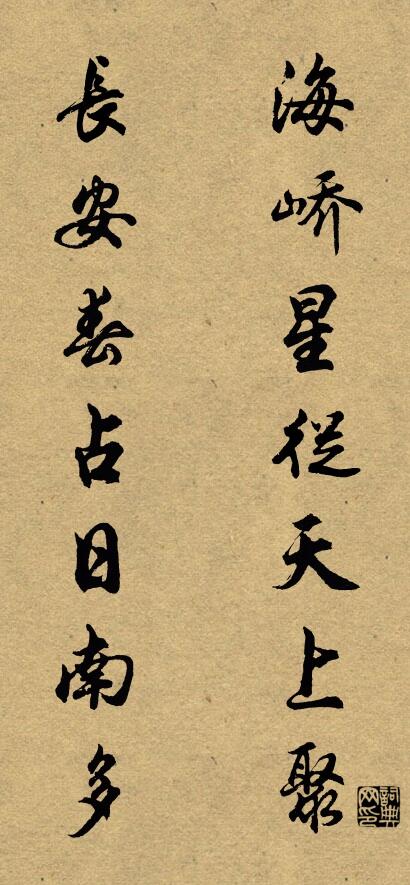 海峤星從天上聚
長安春占日南多
詞典网印